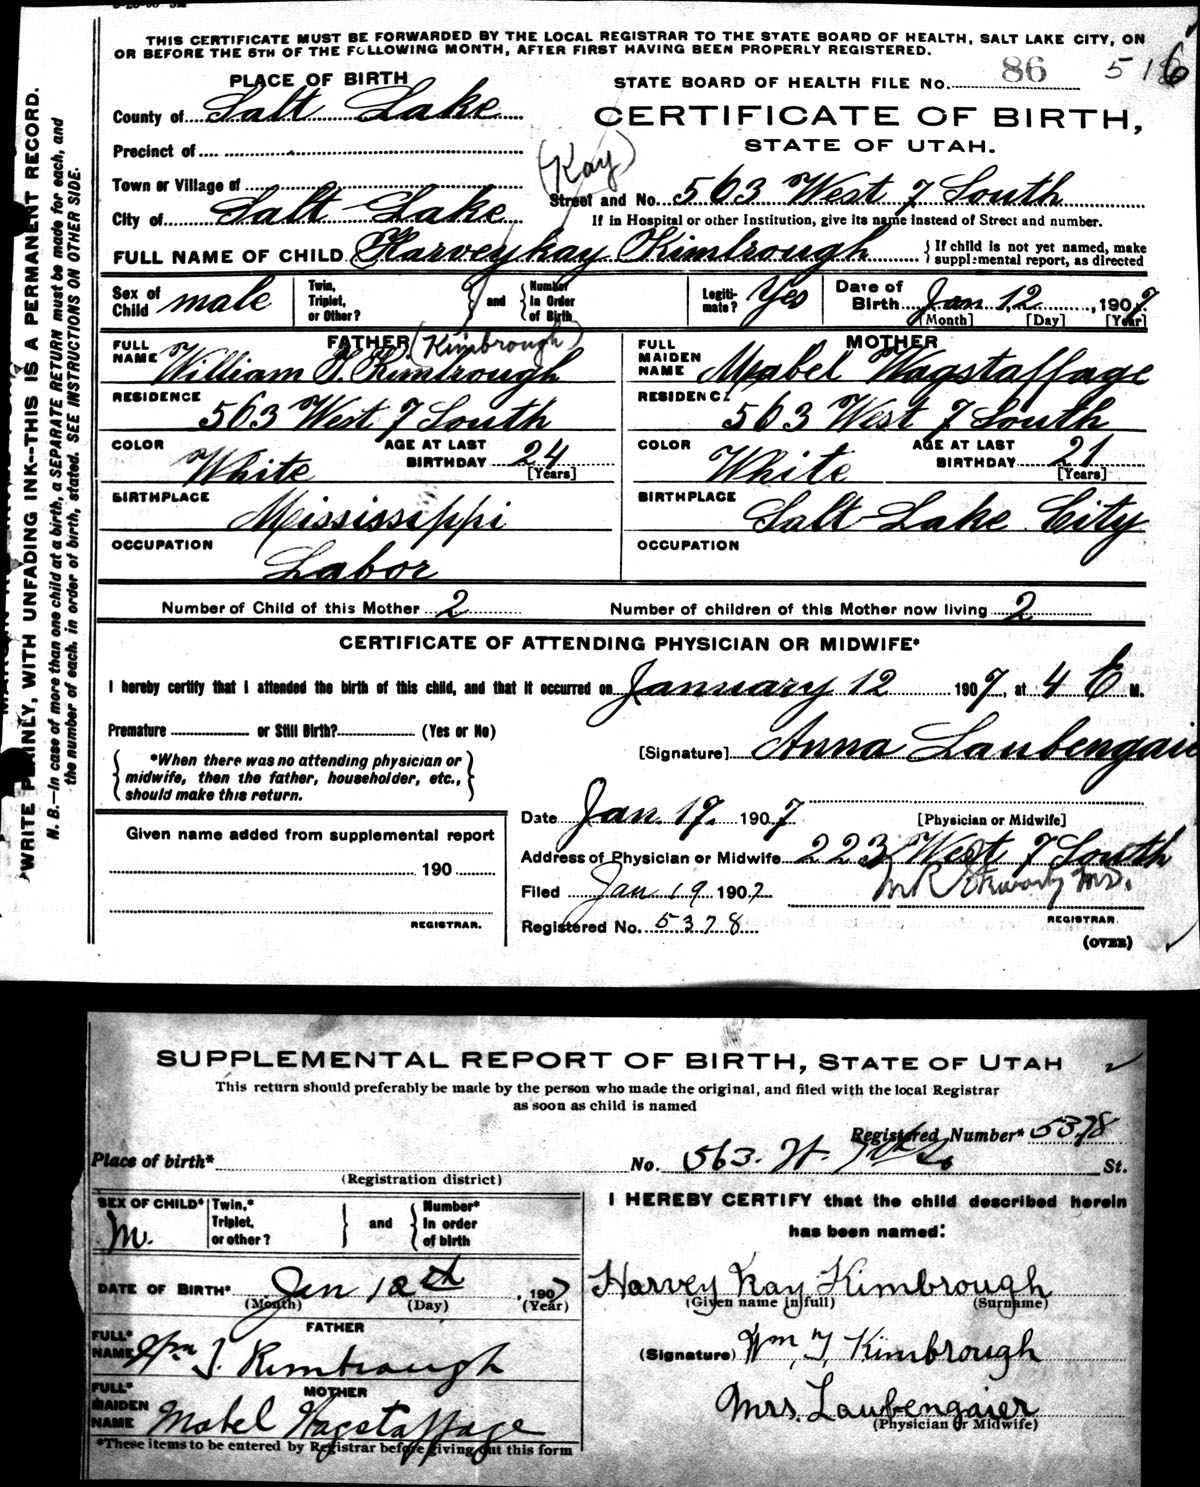 THIS CERTIFICATE MUST BE FORWARDED BY THE LOCAL REGISTRAR TO THE STATE BOARD OF HEALTH, SALT LAKE CITY, ON
OR BEFORE THE 5TH OF THE FOLLOWING MONTH, AFTER FIRST HAVING BEEN PROPERLY REGISTERED.
PLACE OF BIRTH
STATE BOARD OF HEALTH FILE No. 86 516
County of Salt Lake
CERTIFICATE OF BIRTH,
STATE OF UTAH.
Precinct of
(Kay)
Town or Village of
Street and No. 563 West 7 South
City of Salt Lake
If in Hospital or other Institution, give its name instead of Street and number.
FULL NAME OF CHILD Harvey kay Kimbrough
If child is not yet named, make supplemental report, as directed
Sex of Child male
Twin, Triplet, or Other? and Number In Order of Birth
Legitimate? Yes
Date of Birth Jan 12, 1907
[Month] [Day] [Year]
FATHER (Kimbrough)
FULL NAME William T. Kimbrough
MOTHER
FULL MAIDEN NAME Mabel Wagstaffage
RESIDENCE 563 West 7 South
RESIDENCE 563 West 7 South
COLOR White AGE AT LAST BIRTHDAY 24 [Years]
COLOR White AGE AT LAST BIRTHDAY 21 [Years]
BIRTHPLACE Mississippi
BIRTHPLACE Salt Lake City
OCCUPATION Labor
OCCUPATION
Number of Child of this Mother 2 Number of children of this Mother now living 2
CERTIFICATE OF ATTENDING PHYSICIAN OR MIDWIFE*
I hereby certify that I attended the birth of this child, and that it occurred on January 12 1907, at 4 E M.
Premature or Still Birth? (Yes or No)
[Signature] Anna Laubengaie
*When there was no attending physician or
midwife, then the father, householder, etc.,
should make this return.
Date Jan. 17. 1907
[Physician or Midwife]
Given name added from supplemental report
190
REGISTRAR.
Address of Physician or Midwife 223 West 7 South
Filed Jan 19 1907
REGISTRAR.
Registered No. 5378
(OVER)
WRITE PLAINLY, WITH UNFADING INK--THIS IS A PERMANENT RECORD.
N. B.—In case of more than one child at a birth, a SEPARATE RETURN must be made for each, and
the number of each, in order of birth, stated. SEE INSTRUCTIONS ON OTHER SIDE.
SUPPLEMENTAL REPORT OF BIRTH, STATE OF UTAH
This return should preferably be made by the person who made the original, and filed with the local Registrar
as soon as child is named
Registered Number* 5378
Place of birth* No. 563. W. 7th So St.
(Registration district)
SEX OF CHILD* M.
Twin,* Triplet, or other? and Number* In order of birth
I HEREBY CERTIFY that the child described herein
has been named:
DATE OF BIRTH* Jan 12th, 1907
(Month) (Day) (Year)
Harvey Kay Kimbrough
(Given name in full) (Surname)
FATHER
FULL* NAME Wm T. Kimbrough
(Signature) Wm, T, Kimbrough
MOTHER
FULL* MAIDEN NAME Mabel Wagstaffage
Mrs. Laubengaier
(Physician or Midwife)
*These items to be entered by Registrar before giving out this form